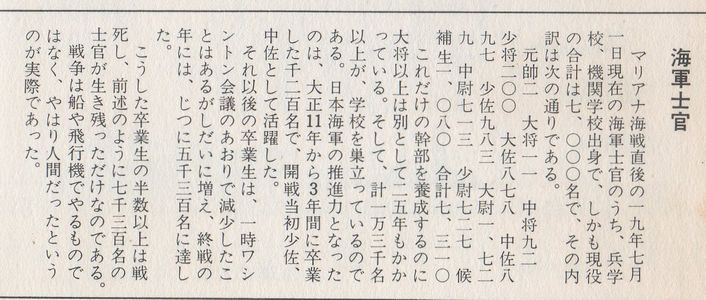 海軍士官
マリアナ海戦直後の一九年七月
一日現在の海軍士官のうち、兵学
校、機関学校出身で、しかも現役
の合計は七、〇〇〇名で、その内
訳は次の通りである。
元帥二 大将一一 中将九二
少将二〇〇 大佐八七八 中佐八
九七 少佐九八三 大尉一、七二
九 中尉七一三 少尉七二七 候
補生一、〇八〇 合計七、三一〇
これだけの幹部を養成するのに
大将以上は別として二五年もかか
っている。そして、計一万三千名
以上が、学校を巣立っているので
ある。日本海軍の推進力となった
のは、大正11年から3年間に卒業
した千二百名で、開戦当初少佐、
中佐として活躍した。
それ以後の卒業生は、一時ワシ
ントン会議のあおりで減少したこ
とはあるがしだいに増え、終戦の
年には、じつに五千三百名に達し
た。
こうした卒業生の半数以上は戦
死し、前述のように七千三百名の
士官が生き残っただけなのである。
戦争は船や飛行機でやるもので
はなく、やはり人間だったという
のが実際であった。